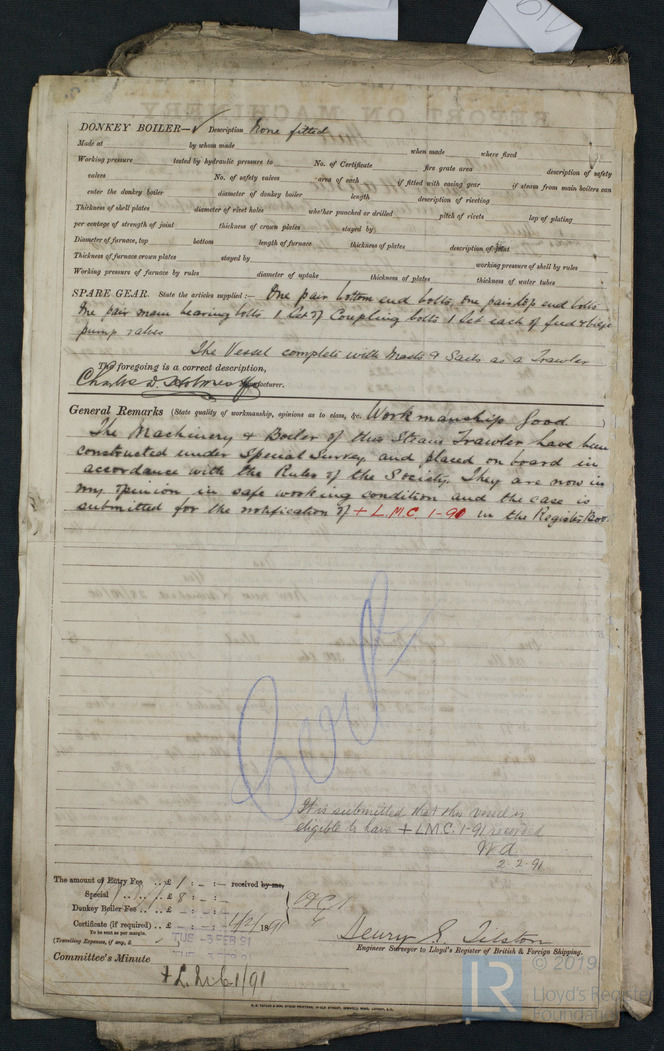 DONKEY BOILER— Description None fitted
Made at by whom made when made where fixed
Working pressure tested by hydraulic pressure to No. of Certificate fire grate area description of safety
valves No. of safety valves area of each if fitted with easing gear if steam from main boilers can
enter the donkey boiler diameter of donkey boiler length description of riveting
Thickness of shell plates diameter of rivet holes whether punched or drilled pitch of rivets lap of plating
per centage of strength of joint thickness of crown plates stayed by
Diameter of furnace, top bottom length of furnace thickness of plates description of joint
Thickness of furnace crown plates stayed by working pressure of shell by rules
Working pressure of furnace by rules diameter of uptake thickness of plates thickness of water tubes
SPARE GEAR. State the articles supplied:— One pair bottom end bolts, one pair top end bolts
One pair main bearing bolts 1 Set of Coupling bolts 1 Set each of feed & bilge
pump valves
The Vessel complete with Masts & Sails as a Trawler
The foregoing is a correct description,
Charles D. Holmes Manufacturer.
General Remarks (State quality of workmanship, opinions as to class, &c. Workmanship Good
The Machinery & Boiler of this Steam Trawler have been
constructed under Special Survey and placed on board in
accordance with the Rules of the Society. They are now in
my opinion in safe working condition and the case is
submitted for the notification of + L.M.C. 1-91 in the Register Book.
It is submitted that this vessel is
eligible to have + LMC. 1-91 recorded
W.A.
2.2.91
The amount of Entry Fee .. £ 1 : - : - received by me,
Special .. .. £ 8 : - : -
Donkey Boiler Fee .. £ - : - : -
Certificate (if required) .. £ - : - : - 1/2/ 1891
To be sent as per margin.
TUE 3 FEB 91
(Travelling Expenses, if any, £
Henry E. Tilston
Engineer Surveyor to Lloyd's Register of British & Foreign Shipping.
Committee's Minute
TUE 3 FEB 91
+ L.M.C. 1/91
LR
© 2019
Lloyd's Register
Foundation